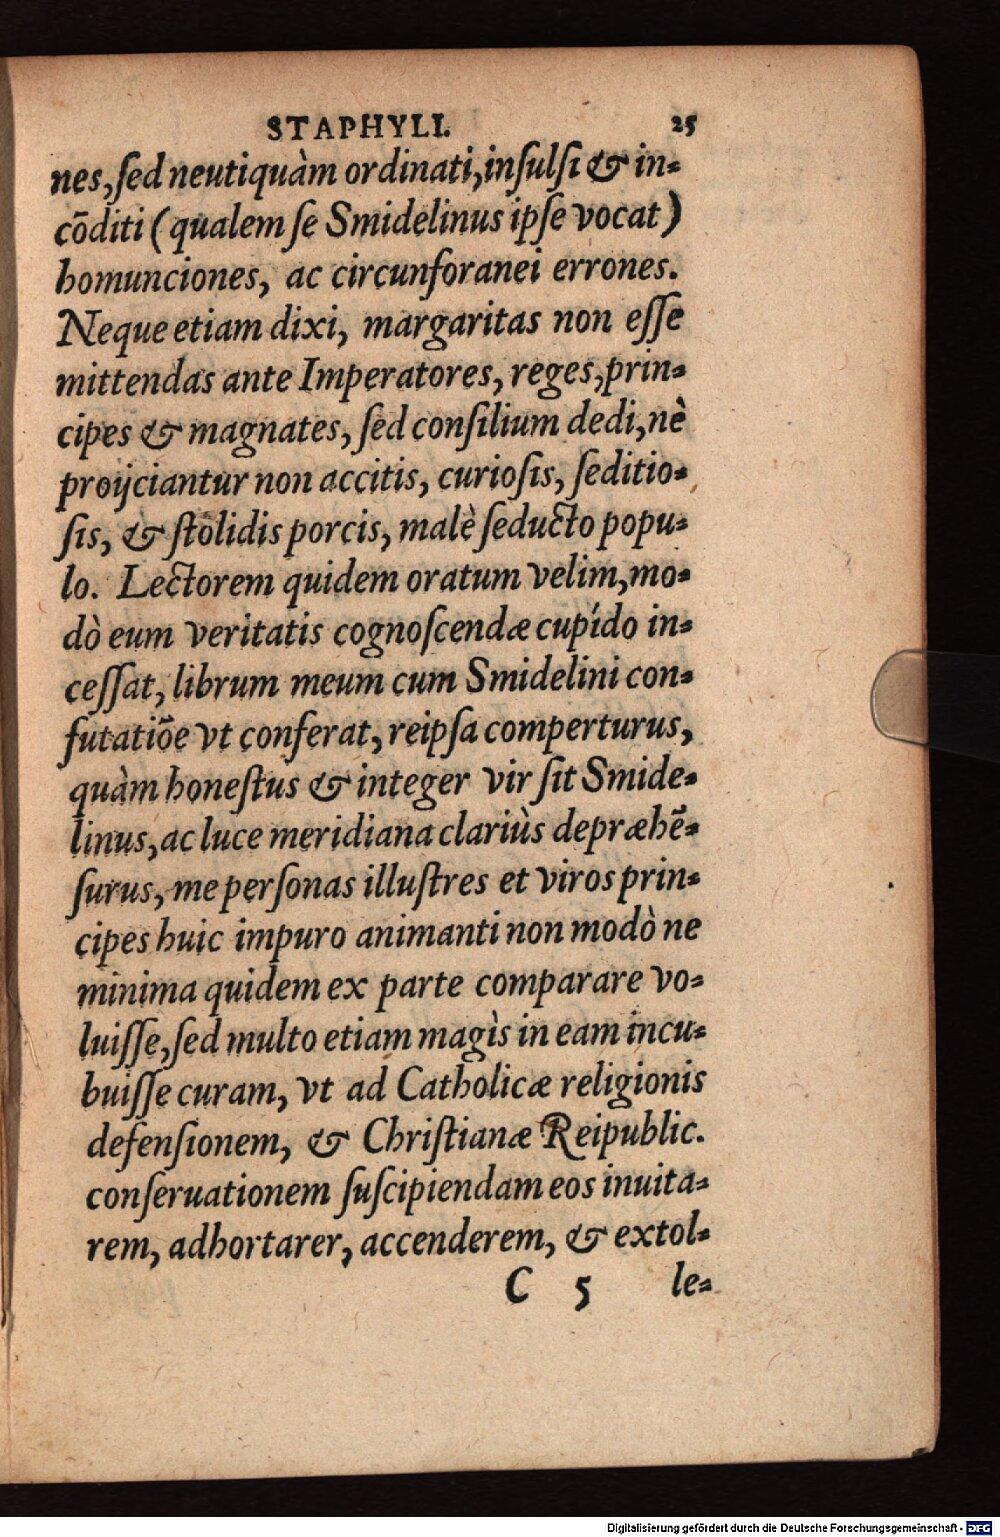 STAPHYLI. 25
nes, ſed neutiquàm ordinati, inſulſi & in-
cōditi (qualem ſe Smidelinus ipſe vocat)
homunciones, ac circunforanei errones.
Neque etiam dixi, margaritas non eſſe
mittendas ante Imperatores, reges, prin-
cipes & magnates, ſed conſilium dedi, nè
proijciantur non accitis, curioſis, ſeditio-
ſis, & ſtolidis porcis, malè ſeducto popu-
lo. Lectorem quidem oratum velim, mo-
dò eum veritatis cognoſcendæ cupído in-
ceſſat, librum meum cum Smidelini con-
futatiōe vt conferat, reipſa comperturus,
quàm honeſtus & integer vir ſit Smide-
linus, ac luce meridiana clariùs depræhē-
ſurus, me perſonas illuſtres et viros prin-
cipes huic impuro animanti non modò ne
minima quidem ex parte comparare vo-
luiſſe, ſed multo etiam magìs in eam incu-
buiſſe curam, vt ad Catholicæ religionis
defenſionem, & Chriſtianæ Reipublic.
conſeruationem ſuſcipiendam eos inuita-
rem, adhortarer, accenderem, & extol-
C 5 le-
Digitalisierung gefördert durch die Deutsche Forschungsgemeinschaft - DFG